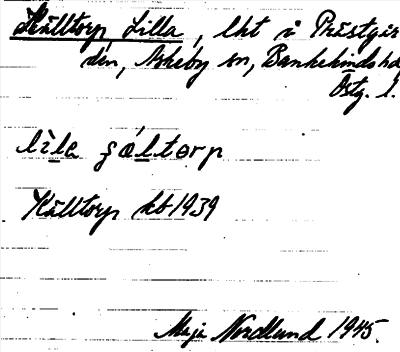 Källtorp Lilla, lht i Prästgår
den, Askeby sn, Bankekinds hd
Östg. l.
lila çältorp
Källtorp kb 1939
Maja Nordlund 1945.